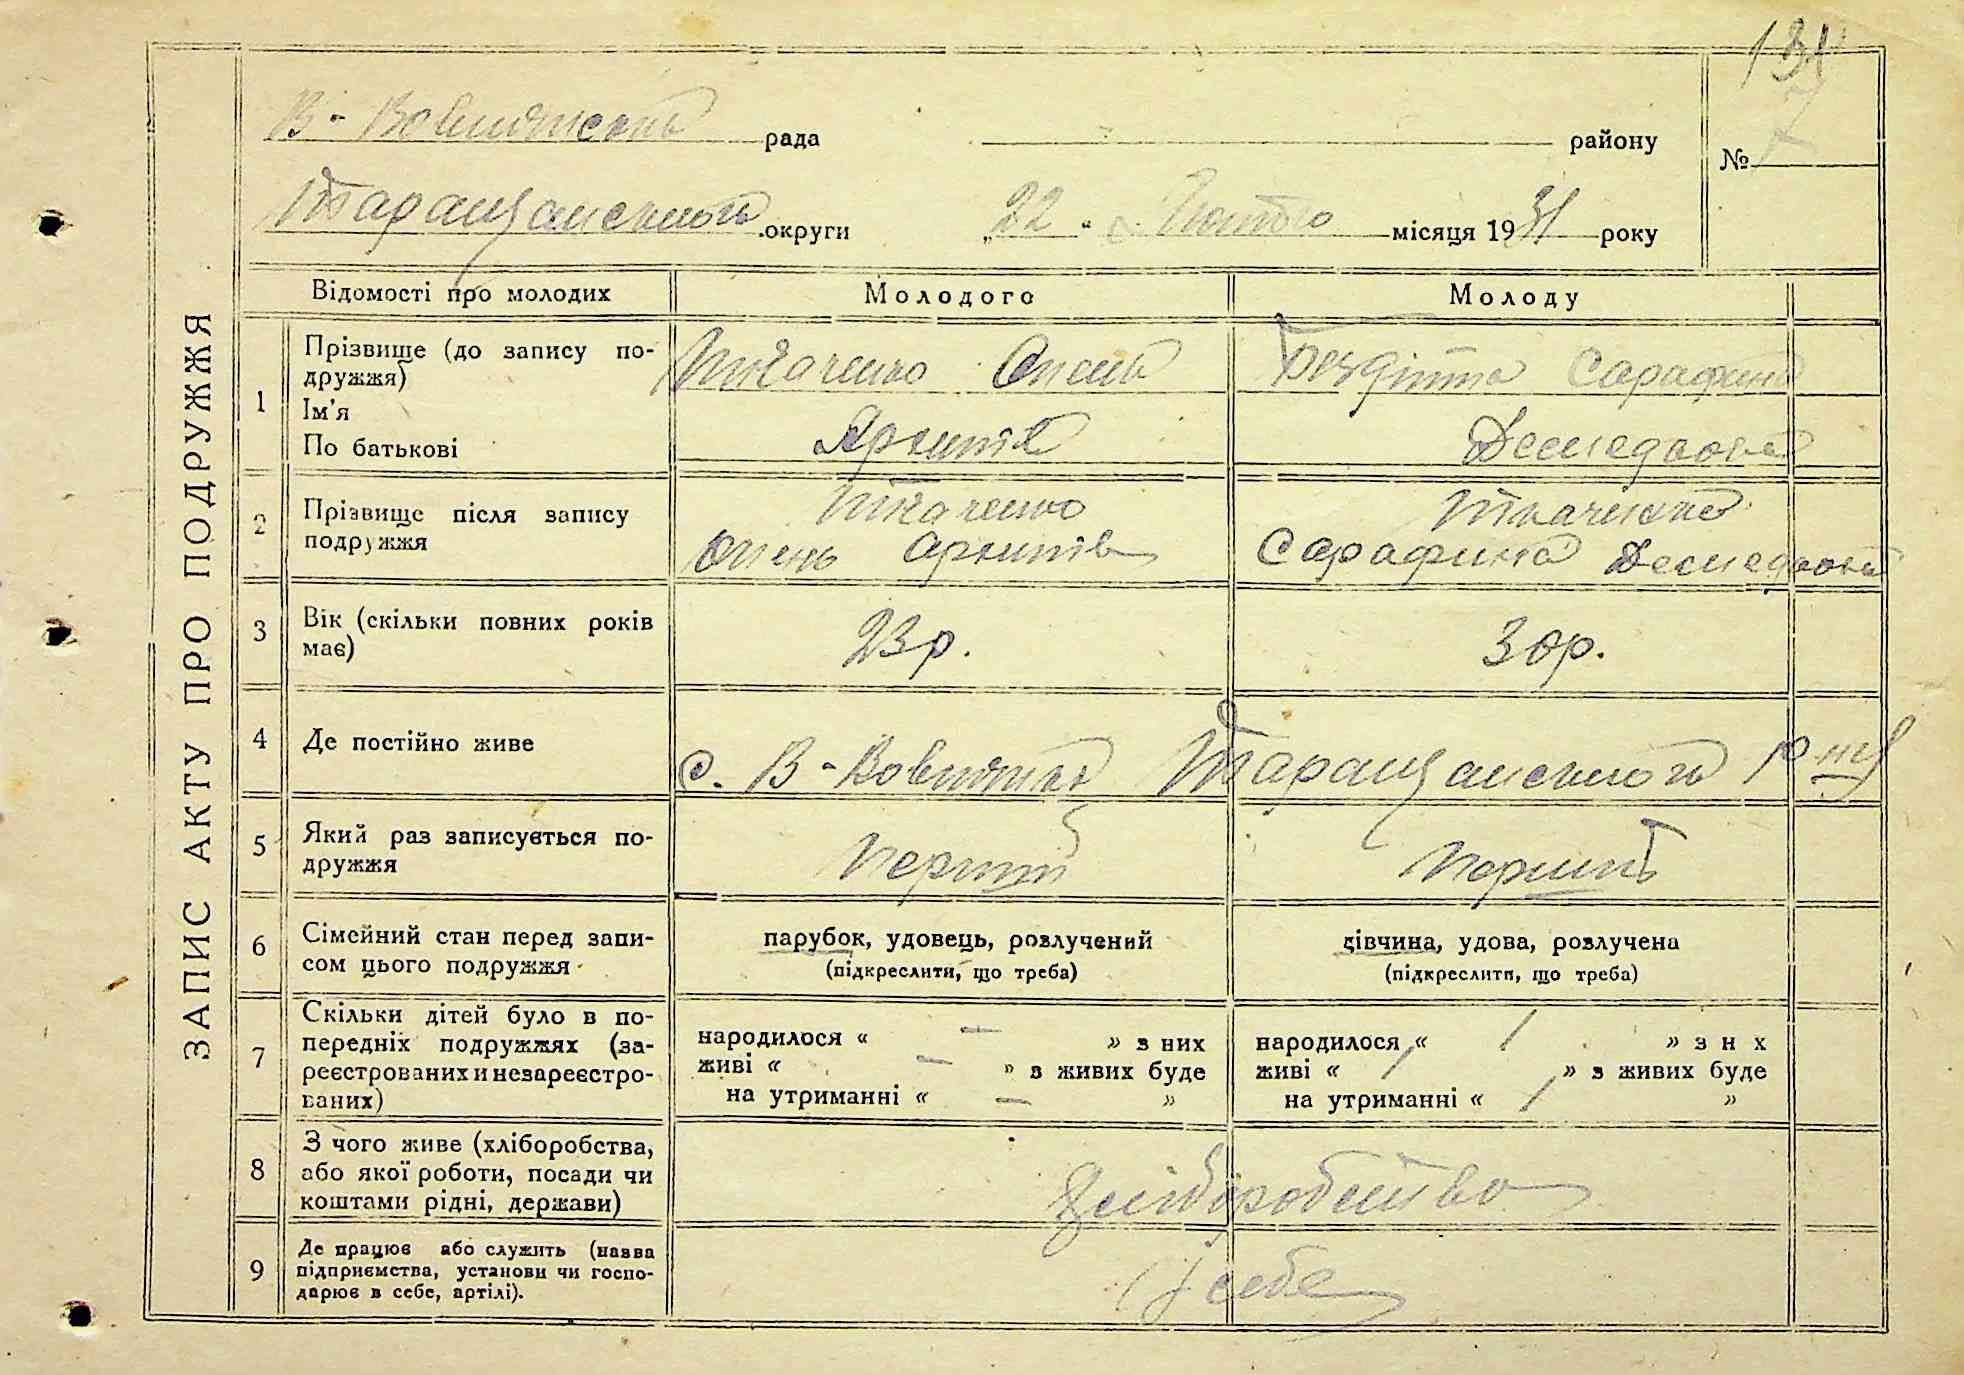 134
В-Вовнянська рада району
№ 7
Таращанського округи „22“ Лютого місяця 1931 року
ЗАПИС АКТУ ПРО ПОДРУЖЖЯ
Відомості про молодих Молодого Молоду
1 Прізвище (до запису по-
дружжя)
Ім'я
По батькові
Ткаченко Опень
Архипів
Бездітна Сарафина
2 Прізвище після запису
подружжя
Ткаченко
Опень Архипів
Ткаченко
Сарафина
3 Вік (скільки повних років
має)
23р. 30р.
4 Де постійно живе с. В-Вовнянка Таращанського р-ну
5 Який раз записується по-
дружжя
перший перший
6 Сімейний стан перед запи-
сом цього подружжя
парубок, удовець, розлучений
(підкреслити, що треба)
дівчина, удова, розлучена
(підкреслити, що треба)
7 Скільки дітей було в по-
передніх подружжях (за-
реєстрованих и незареєстро-
ваних)
народилося « — » з них
живі « — » з живих буде
на утриманні « — »
народилося « / » з н х
живі « / » з живих буде
на утриманні « / »
8 З чого живе (хліборобства,
або якої роботи, посади чи
коштами рідні, держави)
Хліборобство
9 Де працює або служить (назва
підприємства, установи чи госпо-
дарює в себе, артілі).
у себе